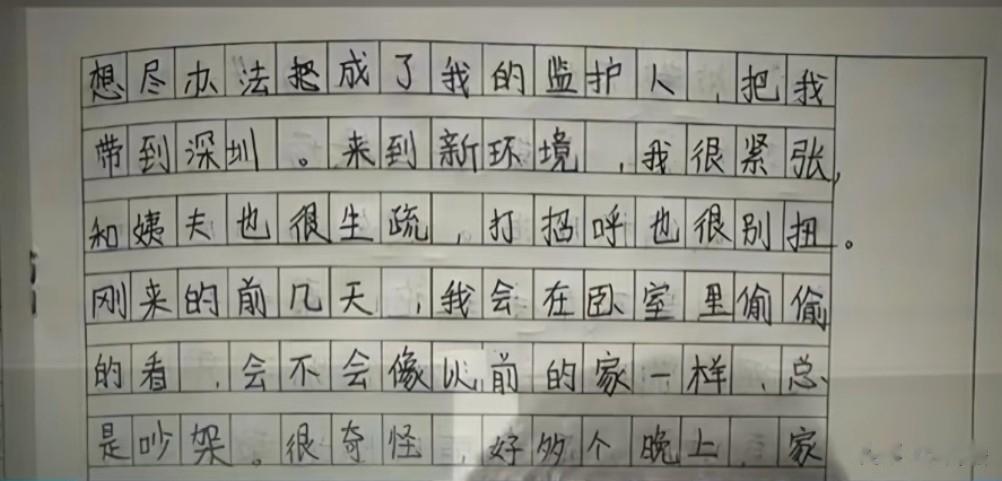 想尽办法把成了我的监护人，把我
带到深圳。来到新环境，我很紧张，
和姨夫也很生疏，打招呼也很别扭。
刚来的前几天，我会在卧室里偷偷
的看，会不会像以前的家一样，总
是吵架。很奇怪，好多个晚上，家